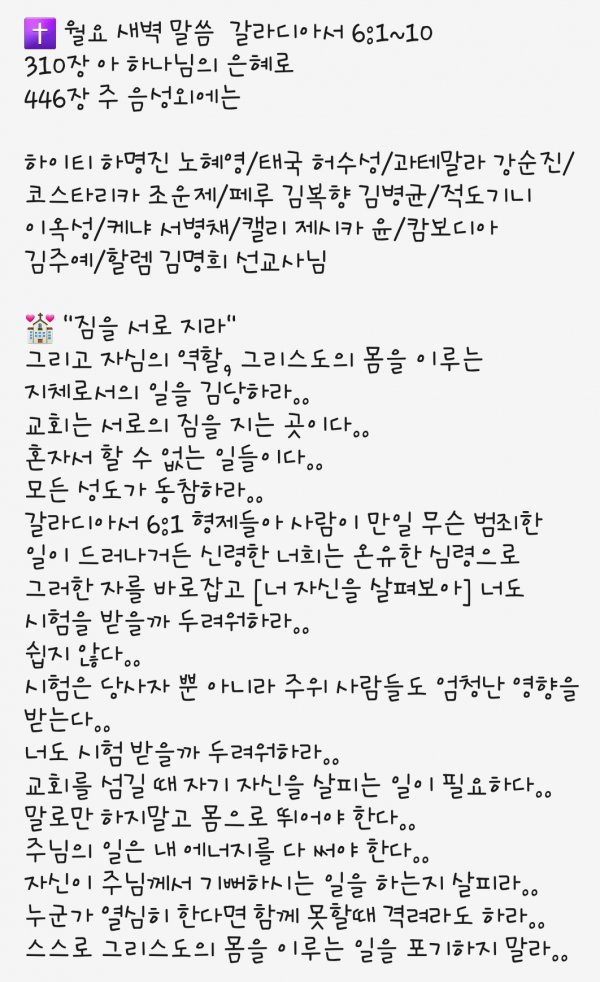 ✝️ 월요 새벽 말씀  갈라디아서 6:1~10
310장 아 하나님의 은혜로
446장 주 음성외에는

하이티 하명진 노혜영/태국 허수성/과테말라 강순진/
코스타리카 조운제/페루 김복향 김병균/적도기니
이옥성/케냐 서병채/캘리 제시카 윤/캄보디아
김주예/할렘 김명희 선교사님

💒 "짐을 서로 지라"
그리고 자심의 역할, 그리스도의 몸을 이루는
지체로서의 일을 김당하라..
교회는 서로의 짐을 지는 곳이다..
혼자서 할 수 없는 일들이다..
모든 성도가 동참하라..
갈라디아서 6:1 형제들아 사람이 만일 무슨 범죄한
일이 드러나거든 신령한 너희는 온유한 심령으로
그러한 자를 바로잡고 [너 자신을 살펴보아] 너도
시험을 받을까 두려워하라..
쉽지 않다..
시험은 당사자 뿐 아니라 주위 사람들도 엄청난 영향을
받는다..
너도 시험 받을까 두려워하라..
교회를 섬길 때 자기 자신을 살피는 일이 필요하다..
말로만 하지말고 몸으로 뛰어야 한다..
주님의 일은 내 에너지를 다 써야 한다..
자신이 주님께서 기뻐하시는 일을 하는지 살피라..
누군가 열심히 한다면 함께 못할때 격려라도 하라..
스스로 그리스도의 몸을 이루는 일을 포기하지 말라..